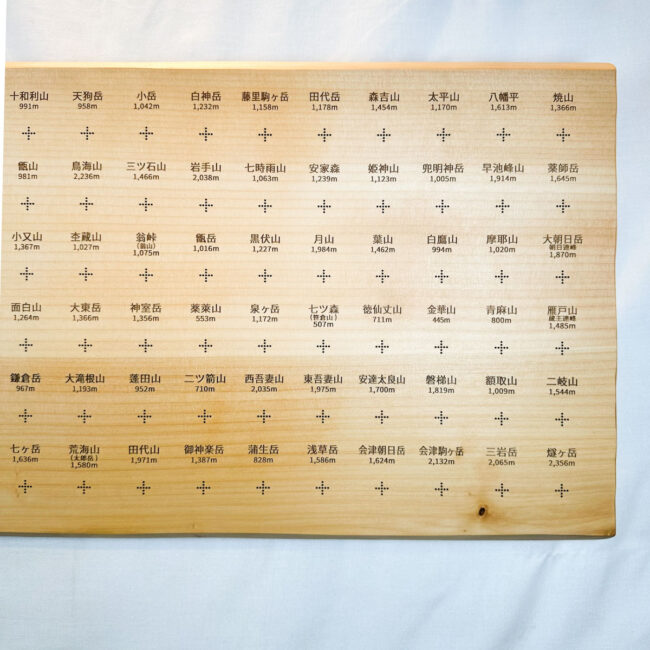 十和利山 天狗岳 小岳 白神岳 藤里駒ヶ岳 田代岳 森吉山 太平山 八幡平 焼山
991m 958m 1,042m 1,232m 1,158m 1,178m 1,454m 1,170m 1,613m 1,366m
甑山 鳥海山 三ツ石山 岩手山 七時雨山 安家森 姫神山 兜明神岳 早池峰山 薬師岳
981m 2,236m 1,466m 2,038m 1,063m 1,239m 1,123m 1,005m 1,914m 1,645m
小又山 杢蔵山 翁峠 甑岳 黒伏山 月山 葉山 白鷹山 摩耶山 大朝日岳
(翁山) 朝日連峰
1,367m 1,027m 1,075m 1,016m 1,227m 1,984m 1,462m 994m 1,020m 1,870m
面白山 大東岳 神室岳 薬莱山 泉ヶ岳 七ツ森 徳仙丈山 金華山 青麻山 雁戸山
(笹倉山) 蔵王連峰
1,264m 1,366m 1,356m 553m 1,172m 507m 711m 445m 800m 1,485m
鎌倉岳 大滝根山 蓬田山 二ツ箭山 西吾妻山 東吾妻山 安達太良山 磐梯山 額取山 二岐山
967m 1,193m 952m 710m 2,035m 1,975m 1,700m 1,819m 1,009m 1,544m
七ヶ岳 荒海山 田代山 御神楽岳 蒲生岳 浅草岳 会津朝日岳 会津駒ヶ岳 三岩岳 燧ヶ岳
(太郎岳)
1,636m 1,580m 1,971m 1,387m 828m 1,586m 1,624m 2,132m 2,065m 2,356m